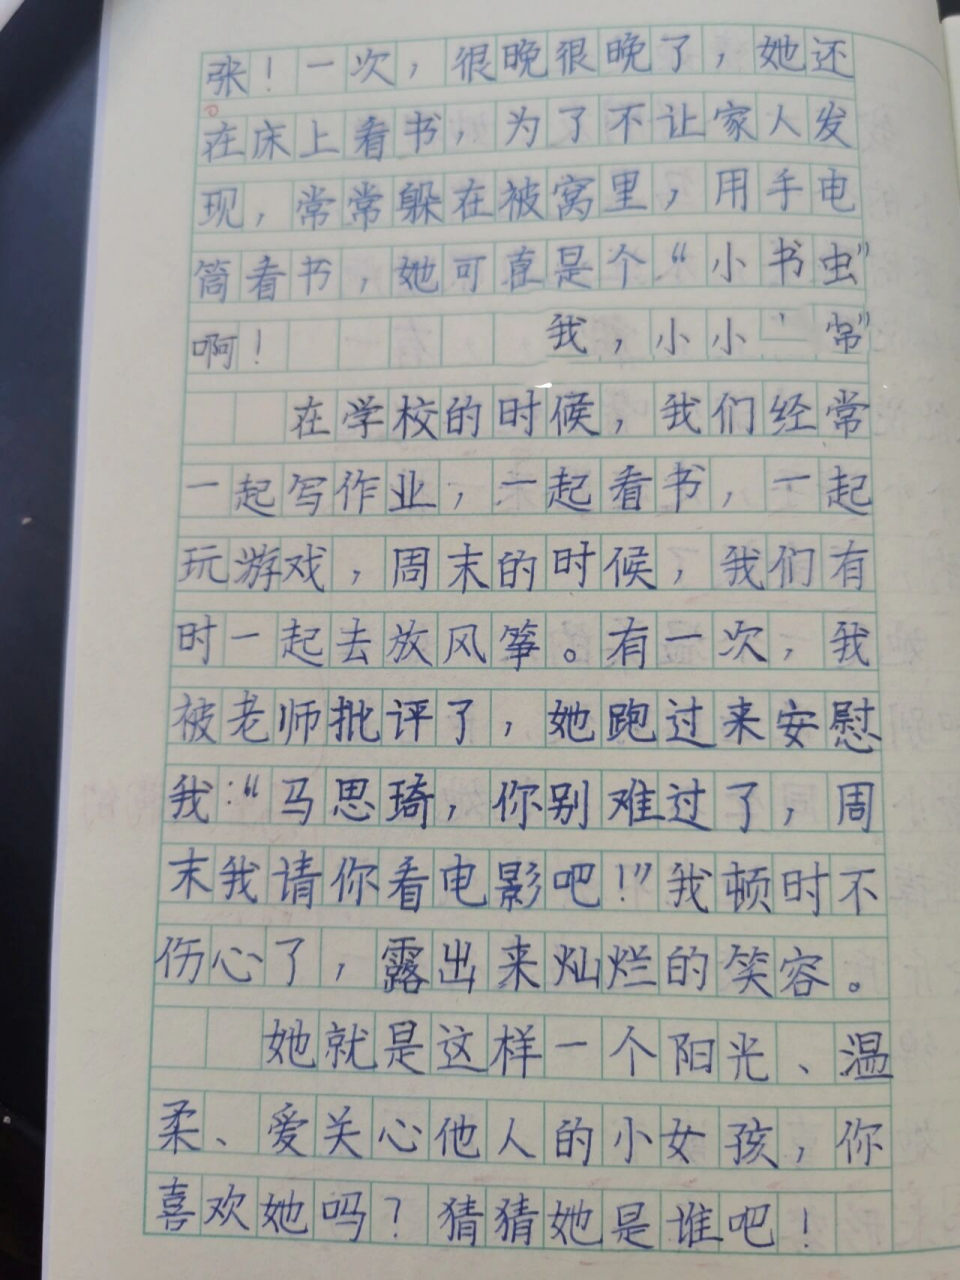 张！一次，很晚很晚了，她还
在床上看书，为了不让家人发
现，常常躲在被窝里，用手电
筒看书，她可真是个“小书虫”
啊！ 我，小小
在学校的时候，我们经常
一起写作业，一起看书，一起
玩游戏，周末的时候，我们有
时一起去放风筝。有一次，我
被老师批评了，她跑过来安慰
我：“马思琦，你别难过了，周
末我请你看电影吧！”我顿时不
伤心了，露出来灿烂的笑容。
她就是这样一个阳光、温
柔、爱关心他人的小女孩，你
喜欢她吗？猜猜她是谁吧！